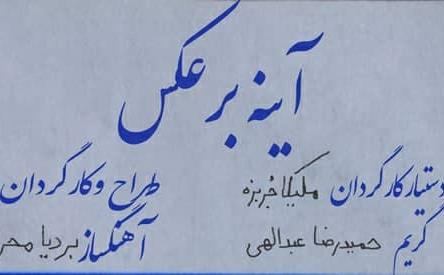 آینه بر عکس
دستیار کارگردان ملیکا جُربزه طراح و کارگردان
گریم حمیدرضا عبدالهی آهنگساز بردیا